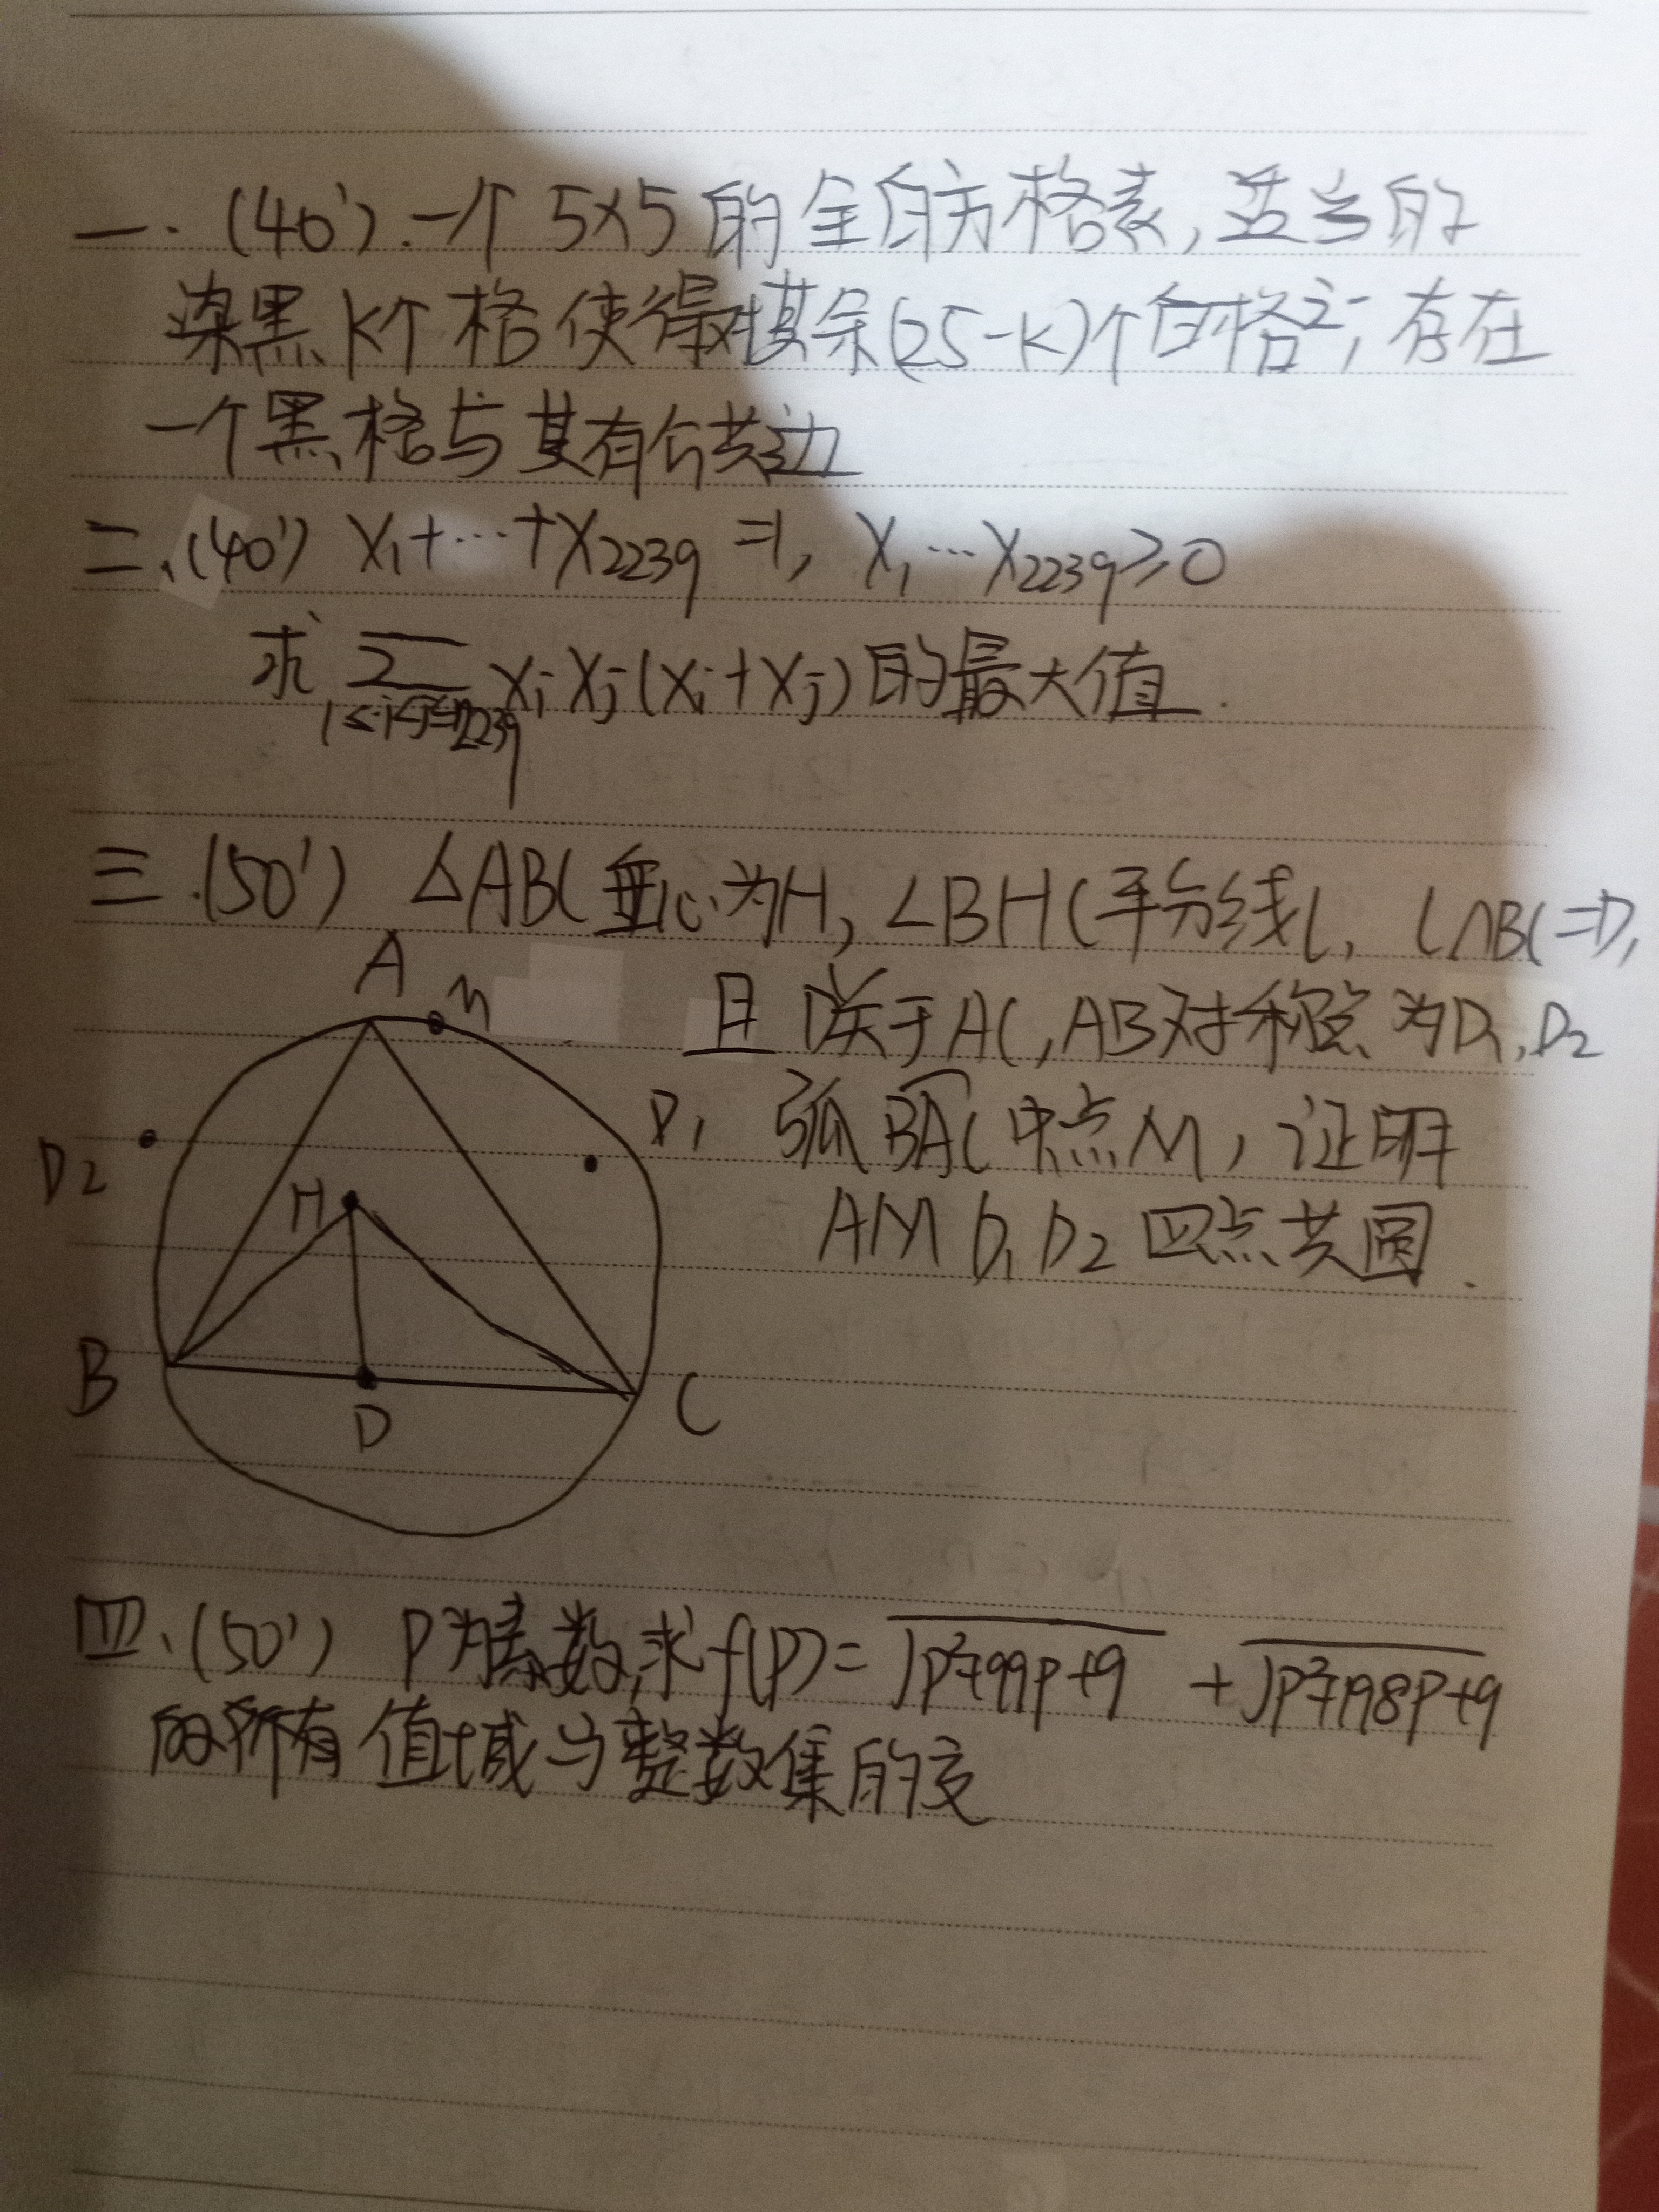 一.(40').一个5×5的全白方格表,适当的
染黑K个格使得对其余(25-K)个白格之一,存在
一个黑格与其有公共边
二.(40') X₁+…+X₂₂₃₉=1, X₁…X₂₂₃₉≥0
求 Σ XᵢXⱼ(Xᵢ+Xⱼ)的最大值.
1≤i<j≤2239
三.(50') △ABC垂心为H,∠BHC平分线l, l∩BC=D,
且D关于AC,AB对称点为D₁,D₂
弧BAC中点M,证明
AMD₁D₂四点共圆.
A
M
D₂
D₁
H
B
D
C
四.(50') P为素数,求f(P)=√P²+99P+9 +√P²+198P+9
的所有值域与整数集的交